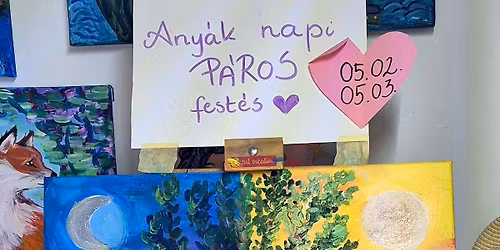 Anyák napi
PÁROS
festés
05.02.
05.03.
art creation